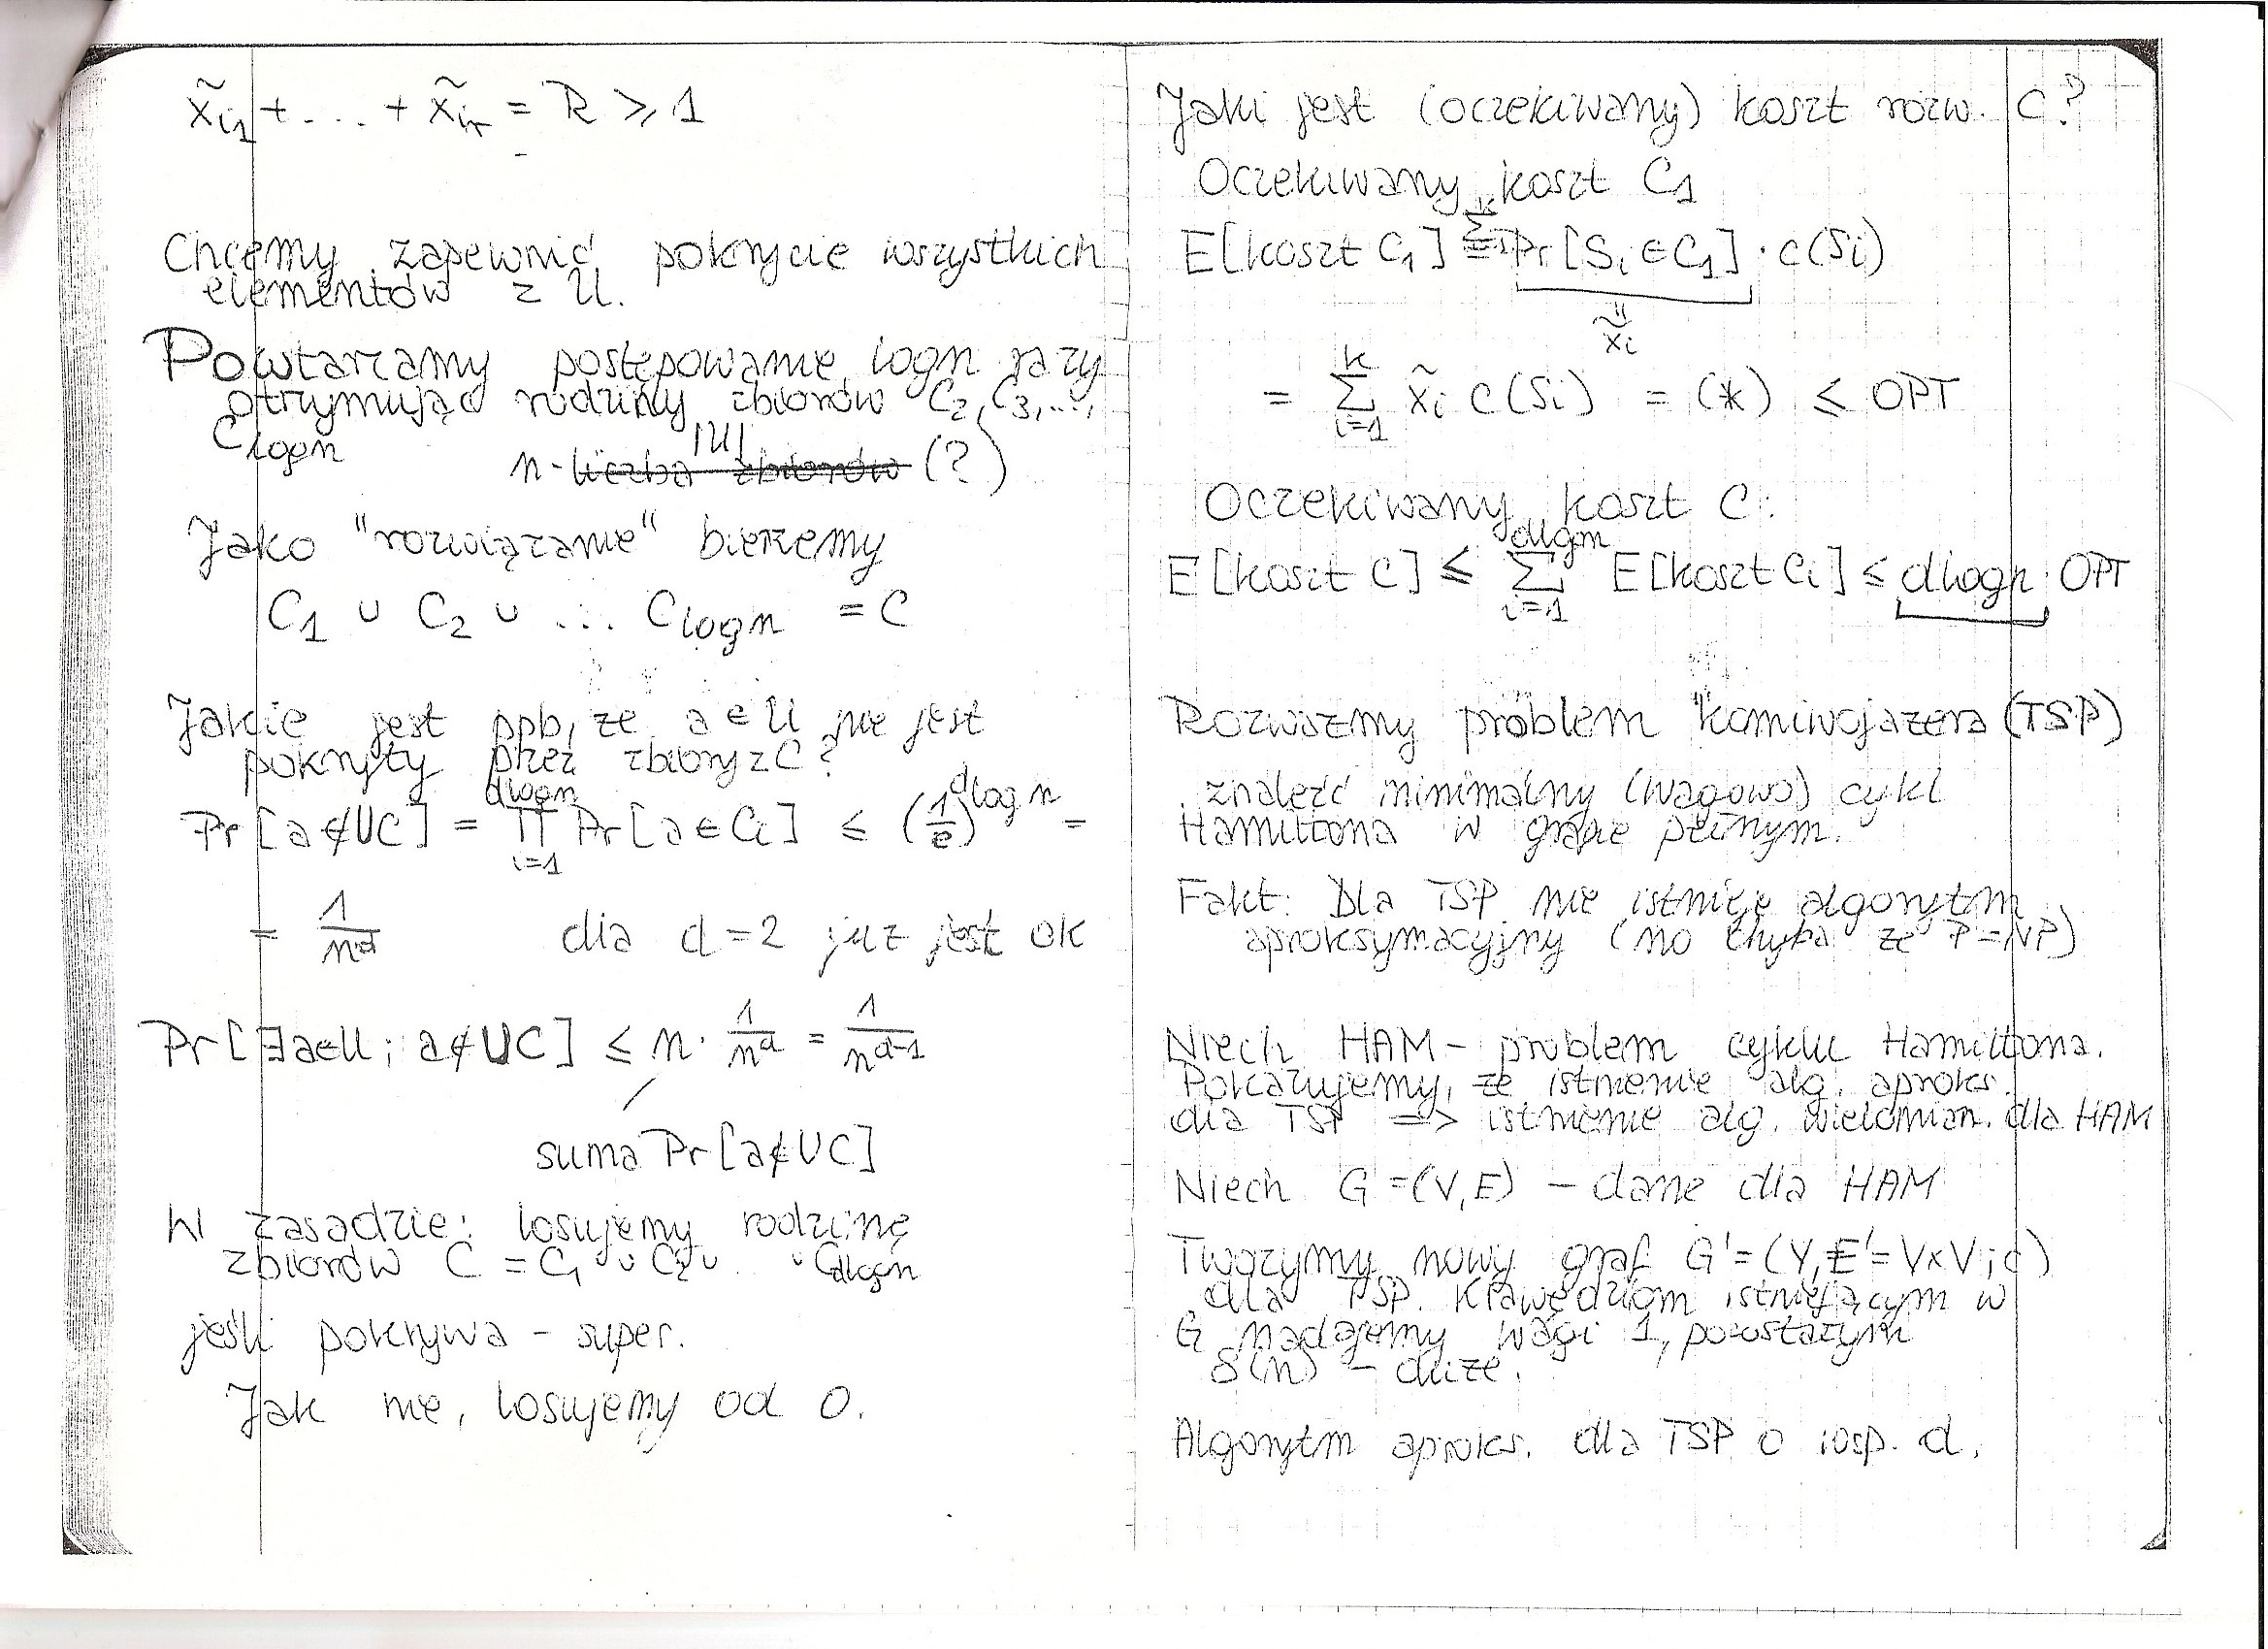 x̃i1 + ... + x̃ir = R ⩾ 1
Chcemy zapewnić pokrycie wszystkich
elementów z U.
Powtarzamy postępowanie logn razy
otrzymując rodziny zbiorów C2, C3, ...,
Clogn
|U|
n - liczba zbiorów (?)
Jako "rozwiązanie" bierzemy
C1 ∪ C2 ∪ ... Clogn = C
Jakie jest ppb, że a ∈ U nie jest
pokryty przez zbiory z C?
Pr[a ∉ UC] = ∏_{i=1}^{dlogn} Pr[a ∈ Ci] ≤ (1/e)^{dlogn} =
= 1/n^d dla d=2 już jest ok
Pr[∃a∈U ; a∉UC] ≤ n · 1/n^d = 1/n^{d-1}
suma Pr[a∉UC]
W zasadzie: losujemy rodzinę
zbiorów C = C1 ∪ C2 ∪ ∪ Cdlogn
jeśli pokrywa - super.
Jak nie, losujemy od 0.
Jaki jest (oczekiwany) koszt rozw. C?
Oczekiwany koszt C1
E[koszt C1] = ∑_{i=1}^{k} Pr[Si ∈ C1] · c(Si)
=
x̃i
= ∑_{i=1}^{k} x̃i c(Si) = (*) ≤ OPT
Oczekiwany koszt C:
E[koszt C] ≤ ∑_{i=1}^{dlogn} E[koszt Ci] ≤ dlogn · OPT
Rozważmy problem komiwojażera (TSP)
znaleźć minimalny (wagowo) cykl
Hamiltona w grafie pełnym.
Fakt: Dla TSP nie istnieje algorytm
aproksymacyjny (no chyba że P=NP)
Niech HAM - problem cyklu Hamiltona.
Pokazujemy, że istnienie alg. aproks.
dla TSP => istnienie alg. wielomian. dla HAM
Niech G=(V,E) - dane dla HAM
Tworzymy nowy graf G'=(V, E'=V×V; c)
dla TSP. Krawędziom istniejącym w
G nadajemy wagi 1, pozostałym
δ(n) - duże.
Algorytm aproks. dla TSP o wsp. d.